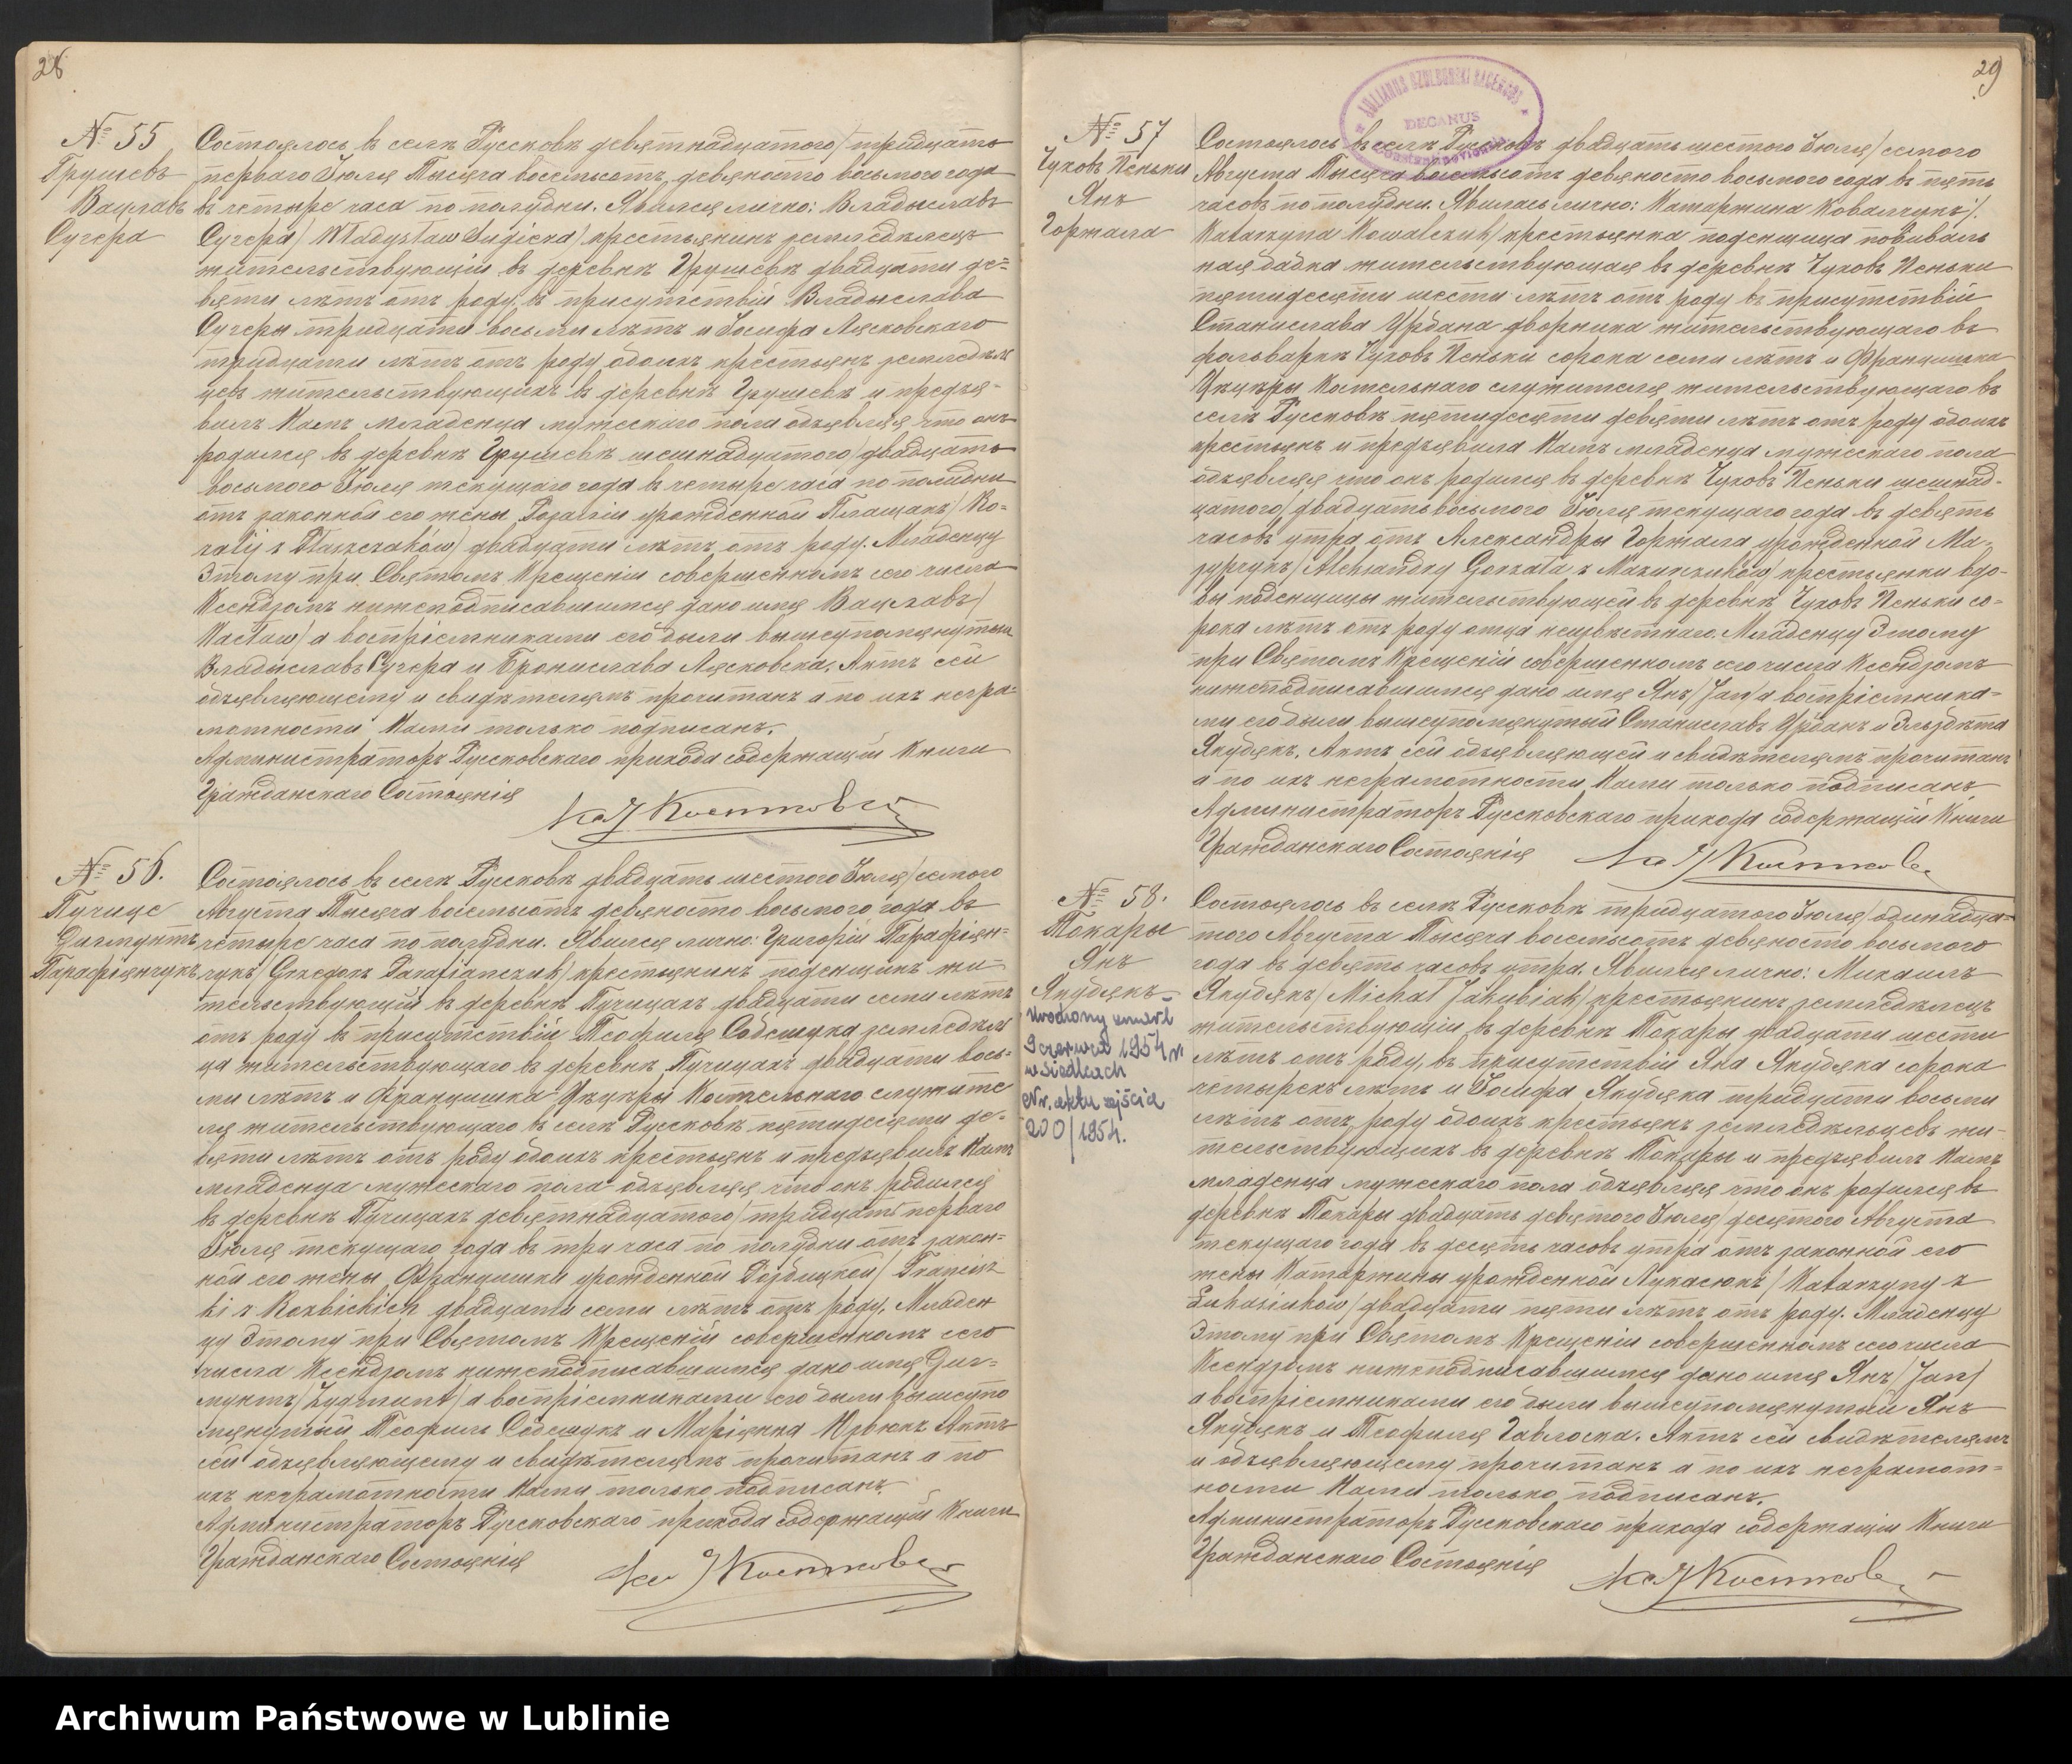 28
№ 55
Грушевъ
Вацлавъ
Сугера
Состоялось въ селѣ Русковѣ девятнадцатого/тридцать
перваго Іюля Тысяча восемьсотъ девяносто восьмого года
въ четыре часа по полудни. Явился лично: Владыславъ
Сугера/Władysław Sugiera/крестьянинъ земледѣлецъ
жительствующій въ деревнѣ Грушевѣ двадцати де-
вяти лѣтъ отъ роду, въ присутствіи Владыслава
Сугеры тридцати восьми лѣтъ и Іосифа Лясковскаго
тридцати лѣтъ отъ роду обоихъ крестьянъ земледѣль
цевъ жительствующихъ въ деревнѣ Грушевѣ и предъя-
вилъ Намъ младенца мужескаго пола объявляя что онъ
родился въ деревнѣ Грушевѣ шешнадцатого/двадцать
восьмого Іюля текущаго года въ четыре часа по полудни
отъ законной его жены Розаліи урожденной Плащакъ/Ro-
zalij z Płaszczaków/двадцати лѣтъ отъ роду. Младенцу
Этому при Святомъ Крещеніи совершенномъ сего числа
Ксендзомъ нижеподписавшимся дано имя Вацлавъ/
Wacław/а воспріемниками его были вышеупомянутый
Владыславъ Сугера и Бронислава Лясковска. Актъ сей
объявляющему и свидѣтелямъ прочитанъ а по ихъ негра-
мотности Нами только подписанъ.
Администраторъ Русковскаго прихода содержащій Книги
Гражданскаго Состоянія
№ 56.
Пучице
Зигмунтъ
Парафіянчукъ
Состоялось въ селѣ Русковѣ двадцать шестого Іюля/семого
Августа Тысяча восемьсотъ девяносто восьмого года въ
четыре часа по полудни. Явился лично: Григорій Парафіян-
чукъ/Grzegorz Parafianczuk/крестьянинъ поденщикъ жи-
тельствующій въ деревнѣ Пучицахъ двадцати семи лѣтъ
отъ роду въ присутствіи Теофиля Собещука земледѣль
ца жительствующаго въ деревнѣ Пучицахъ двадцати вось-
ми лѣтъ и Францишка Цѣцѣры Костельнаго служите
ля жительствующаго въ селѣ Русковѣ пятидесяти де-
вяти лѣтъ отъ роду обоихъ крестьянъ и предъявилъ Намъ
младенца мужескаго пола объявляя что онъ родился
въ деревнѣ Пучицахъ девятнадцатого/тридцать перваго
Іюля текущаго года въ три часа по полудни отъ закон-
ной его жены Францишки урожденной Розбицкой/Francisz
ki z Rozbickich двадцати семи лѣтъ отъ роду. Младен
цу Этому при Святомъ Крещеніи совершенномъ сего
числа Ксендзомъ нижеподписавшимся дано имя Зиг-
мунтъ/Zygmunt/а воспріемниками его были вышеупо
мянутый Теофиль Собещукъ и Маріянна Актъ
сей объявляющему и свидѣтелямъ прочитанъ а по
ихъ неграмотности Нами только подписанъ.
Администраторъ Русковскаго прихода содержащій Книги
Гражданскаго Состоянія
29
JULIANUS SACERDOS
DECANUS
№ 57
Чуховъ Пеньки
Янъ
Горжала
Состоялось въ селѣ Русковѣ двадцать шестого Іюля/семого
Августа Тысяча восемьсотъ девяносто восьмого года въ пять
часовъ по полудни. Явилась лично: Катаржина Ковальчукъ/
Katarzyna Kowalczuk/крестьянка поденщица повиваль
ная бабка жительствующая въ деревнѣ Чуховъ Пеньки
пятидесяти шести лѣтъ отъ роду въ присутствіи
Станислава Урбана дворника жительствующаго въ
фольваркѣ Чуховъ Пеньки сорока семи лѣтъ и Францишка
Цѣцѣры Костельнаго служителя жительствующаго въ
селѣ Русковѣ пятидесяти девяти лѣтъ отъ роду обоихъ
крестьянъ и предъявила Намъ младенца мужескаго пола
объявляя что онъ родился въ деревнѣ Чуховъ Пеньки шешнад-
цатого/двадцать восьмого Іюля текущаго года въ девять
часовъ утра отъ Александры Горжала урожденной Ма-
зурчукъ/Aleksandry Gorzała z Mazurczuków/крестьянки вдо-
вы поденщицы жительствующей въ деревнѣ Чуховъ Пеньки со-
рока лѣтъ отъ роду отца неизвѣстнаго. Младенцу Этому
при Святомъ Крещеніи совершенномъ сего числа Ксендзомъ
нижеподписавшимся дано имя Янъ/Jan/а воспріемника-
ми его были вышеупомянутый Станиславъ Урбанъ и Эльзбѣта
Якубякъ. Актъ сей объявляющей и свидѣтелямъ прочитанъ
а по ихъ неграмотности Нами только подписанъ
Администраторъ Русковскаго прихода содержащій Книги
Гражданскаго Состоянія
№ 58.
Токары
Янъ
Якубякъ
Urodzony zmarł
9 czerwca 1954 r.
w Siedlcach
Nr. aktu zejścia
200/1954.
Состоялось въ селѣ Русковѣ тридцатого Іюля/одинадца-
того Августа Тысяча восемьсотъ девяносто восьмого
года въ девять часовъ утра. Явился лично: Михаилъ
Якубякъ/Michał Jakubiak/крестьянинъ земледѣлецъ
жительствующій въ деревнѣ Токары двадцати шести
лѣтъ отъ роду, въ присутствіи Яна Якубяка сорока
четырехъ лѣтъ и Іосифа Якубяка тридцати восьми
лѣтъ отъ роду обоихъ крестьянъ земледѣльцевъ жи-
тельствующихъ въ деревнѣ Токары и предъявилъ Намъ
младенца мужескаго пола объявляя что онъ родился въ
деревнѣ Токары двадцать девятого Іюля/десятого Августа
текущаго года въ десять часовъ утра отъ законной его
жены Катаржины урожденной Лукасюкъ/Katarzyny z
Łukasiuków/двадцати пяти лѣтъ отъ роду. Младенцу
Этому при Святомъ Крещеніи совершенномъ сего числа
Ксендзомъ нижеподписавшимся дано имя Янъ/Jan/
а воспріемниками его были вышеупомянутый Янъ
Якубякъ и Теофиля Гавлоска. Актъ сей свидѣтелямъ
и объявляющему прочитанъ а по ихъ неграмот-
ности Нами только подписанъ.
Администраторъ Русковскаго прихода содержащій Книги
Гражданскаго Состоянія
Archiwum Państwowe w Lublinie